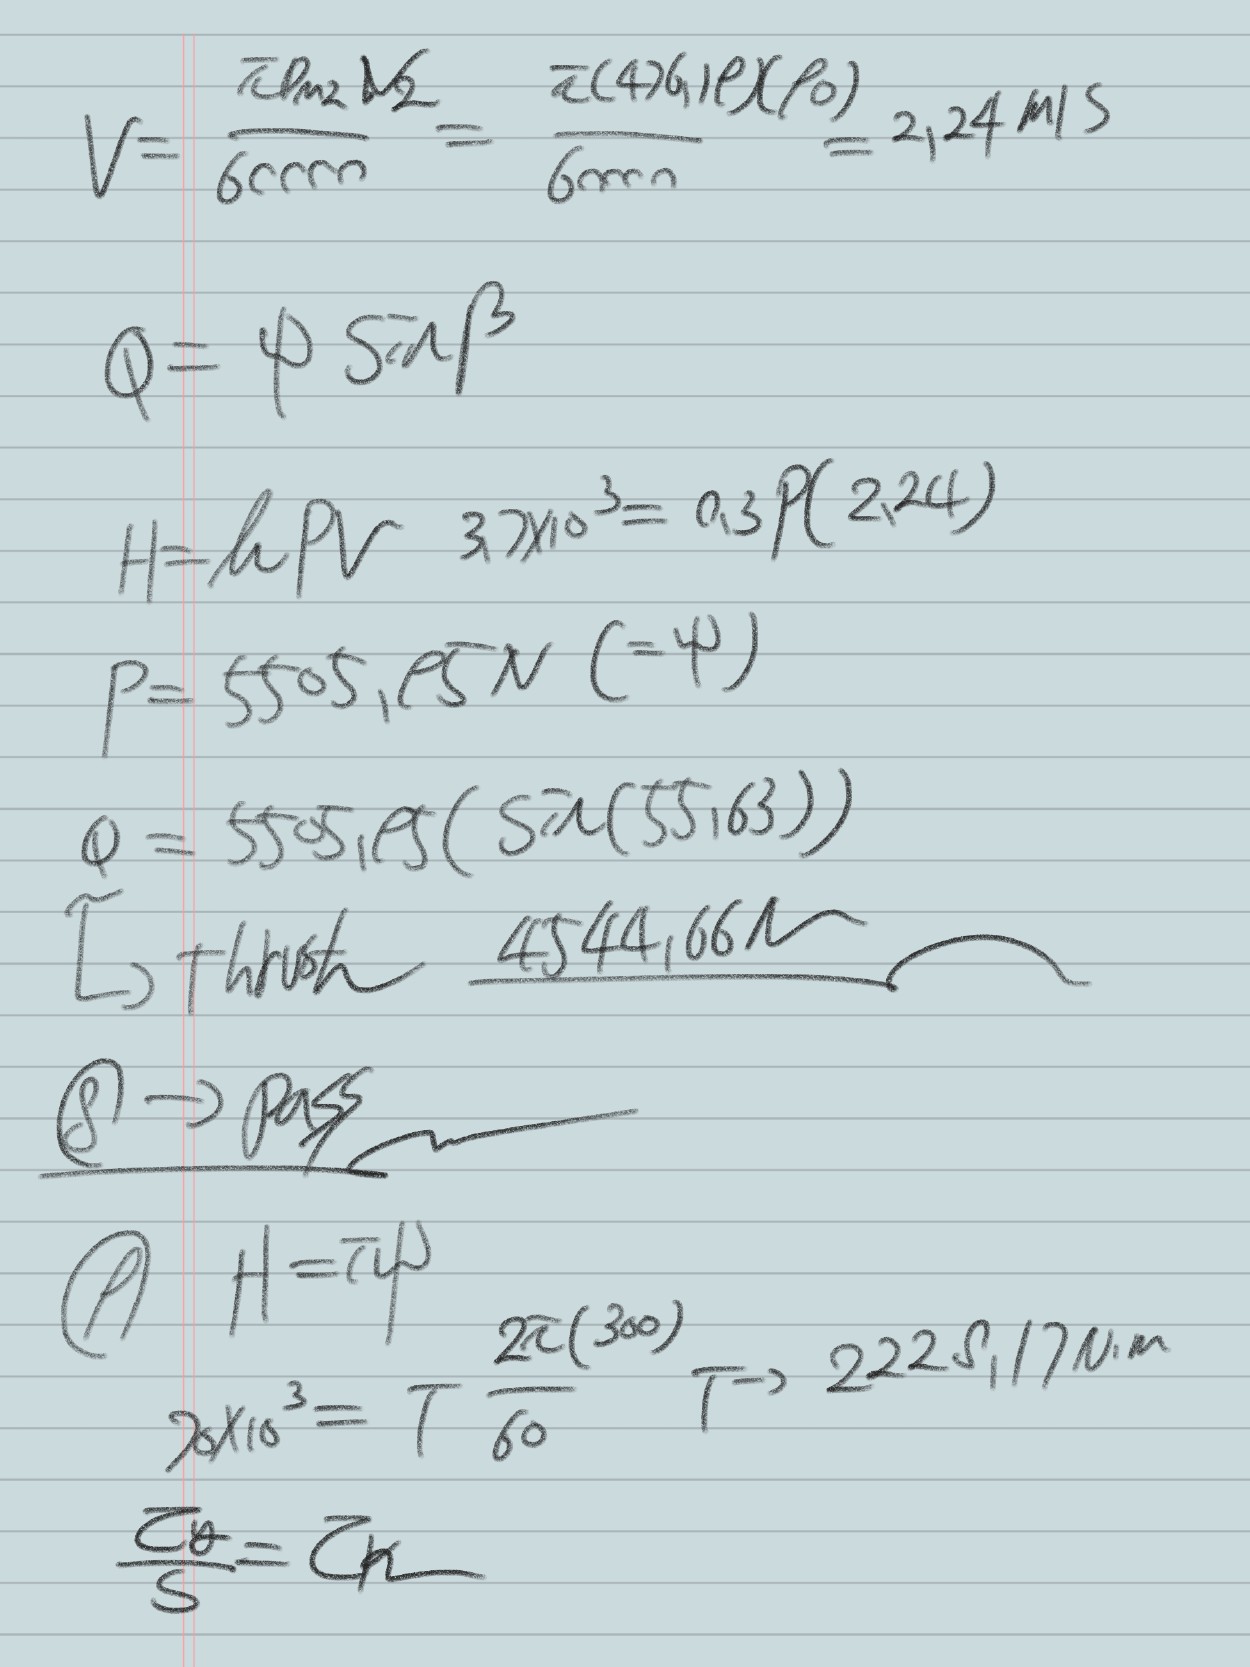 V = πDm2 N2 / 60000 = π(476,18)(90) / 60000 = 2,24 m/s
Q = ψ sin β
H = μPV 3,7×10³ = 0,3P(2,24)
P = 5505,95 N (=ψ)
Q = 5505,95(sin(55,63))
↳ thrust 4544,66 N
⑧ → pass
⑨ H = Tψ
70×10³ = T 2π(300) / 60 T → 2228,17 N.m